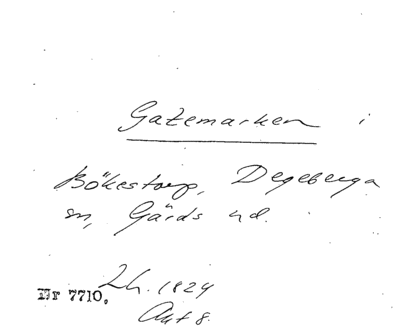 Gatemarken i
Bökestorp, Degeberga
sn, Gärds hd.
Lh. 1824
Nr 7710.
Akt 8.